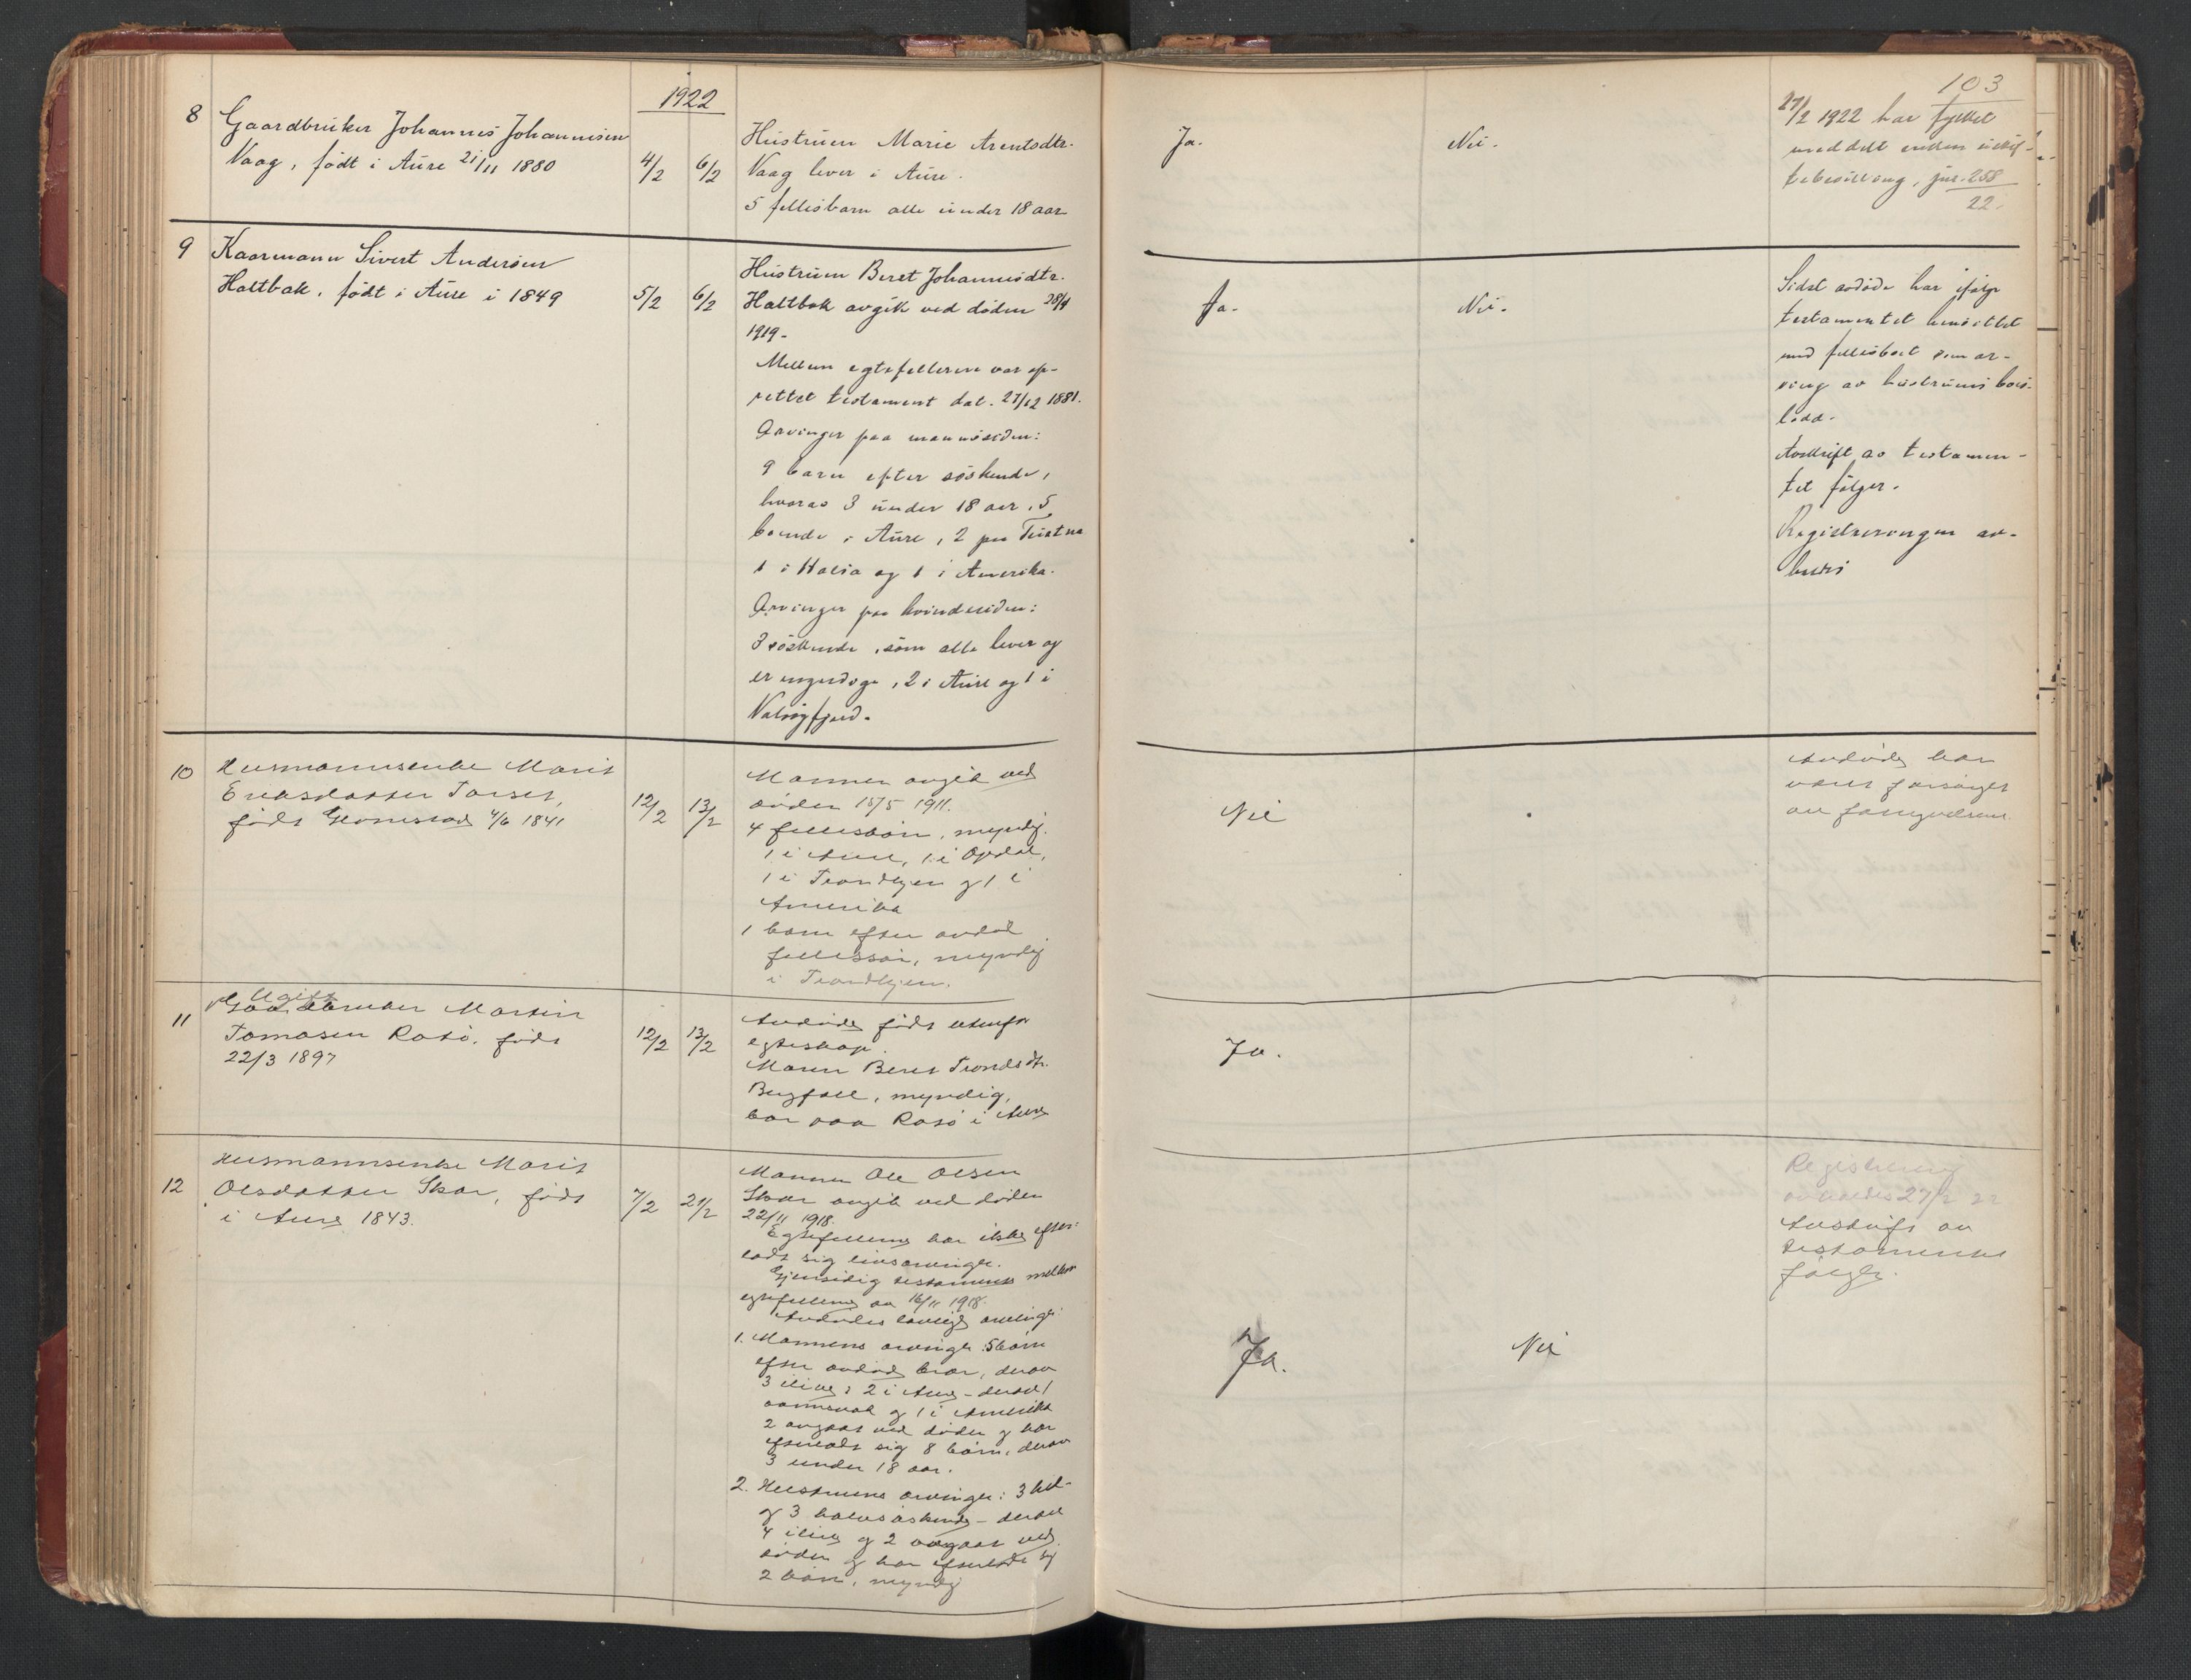 1922
103
8 Gaardbruker Johannes Johannesen
Vaag, født i Aure 21/11 1880
4/2 6/2
Hustruen Marie Arentsdtr.
Vaag lever i Aure.
5 fellesbarn alle under 18 aar
Ja.
Nei.
27/2 1922 har fylket
meddelt enken uskif-
tebevilling, jnr. 258
22.
9 Kaarmann Sivert Andersen
Holtbak, født i Aure i 1849
5/2 6/2
Hustruen Beret Johannesdtr.
Holtbak avgik ved døden 28/4
1919.
Mellem egtefellerne var op-
rettet testament dat. 27/12 1881.
Arvinger paa mannssiden:
9 barn efter søskende,
hvorav 3 under 18 aar, 5
boende i Aure, 2 paa Tustna
1 i Halsa og 1 i Amerika.
Arvinger paa kvindesiden:
3 søskende, som alle lever og
er myndige, 2 i Aure og 1 i
Valsøyfjord.
Ja.
Nei.
Sidst avdøde har ifølge
testamentet hensittet
med fellesboet som ar-
ving av hustruens bos-
lodd.
Avskrift av testamen-
tet følger.
Registreringen av-
holdes
10 Husmannsenke Marit
Eriksdatter Torset,
født 4/6 1841
12/2 13/2
Mannen avgik ved
døden 15/5 1911.
4 fellesbarn, myndig.
1 i Aure, 1 i Opdal,
1 i Trondhjem og 1 i
Amerika
1 barn efter avdød
fellessøn, myndig
i Trondhjem.
Nei
Avdøde har
været forsørget
av fattigvæsenet.
11 Ugift
Gaardbruker Martin
Tomasen Rotø, født
22/3 1897
12/2 13/2
Avdøde født utenfor
egteskap.
Moren Beret Trondsdtr.
Bugfall, myndig,
bor paa Rotø i Aure
Ja.
12 Husmannsenke Marit
Olsdatter Skar, født
i Aure 1843.
7/2 21/2
Mannen Ole Olsen
Skar avgik ved døden
22/11 1918.
Egtefellerne har ikke efter-
ladt sig livsarvinger.
Gjensidig testament mellem
egtefellerne av 16/11 1918.
Avdødes lovlige arvinger:
1. Mannens arvinger: 5 barn
efter avdød bror, derav
3 ilive: 2 i Aure - derav 1
aandssvak og 1 i Amerika
2 avgaat ved døden og har
efterladt sig 8 barn, derav
3 under 18 aar.
2. Hustruens arvinger: 3 hel-
og 3 halvsøskende - derav
4 ilive og 2 avgaat ved
døden og har efterladt sig
2 barn, myndig
Ja.
Nei
Registrering
avholdes 27/2 22
Avskrift av
testamente
følger.